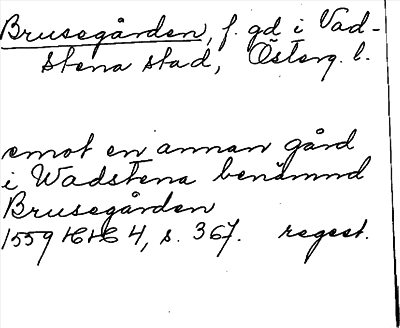 Brusegården, f. gd i Vad-
stena stad, Österg. l.
emot en annan gård
i Wadstena benämnd
Brusegården
1559 HH 4, s. 367. regest.